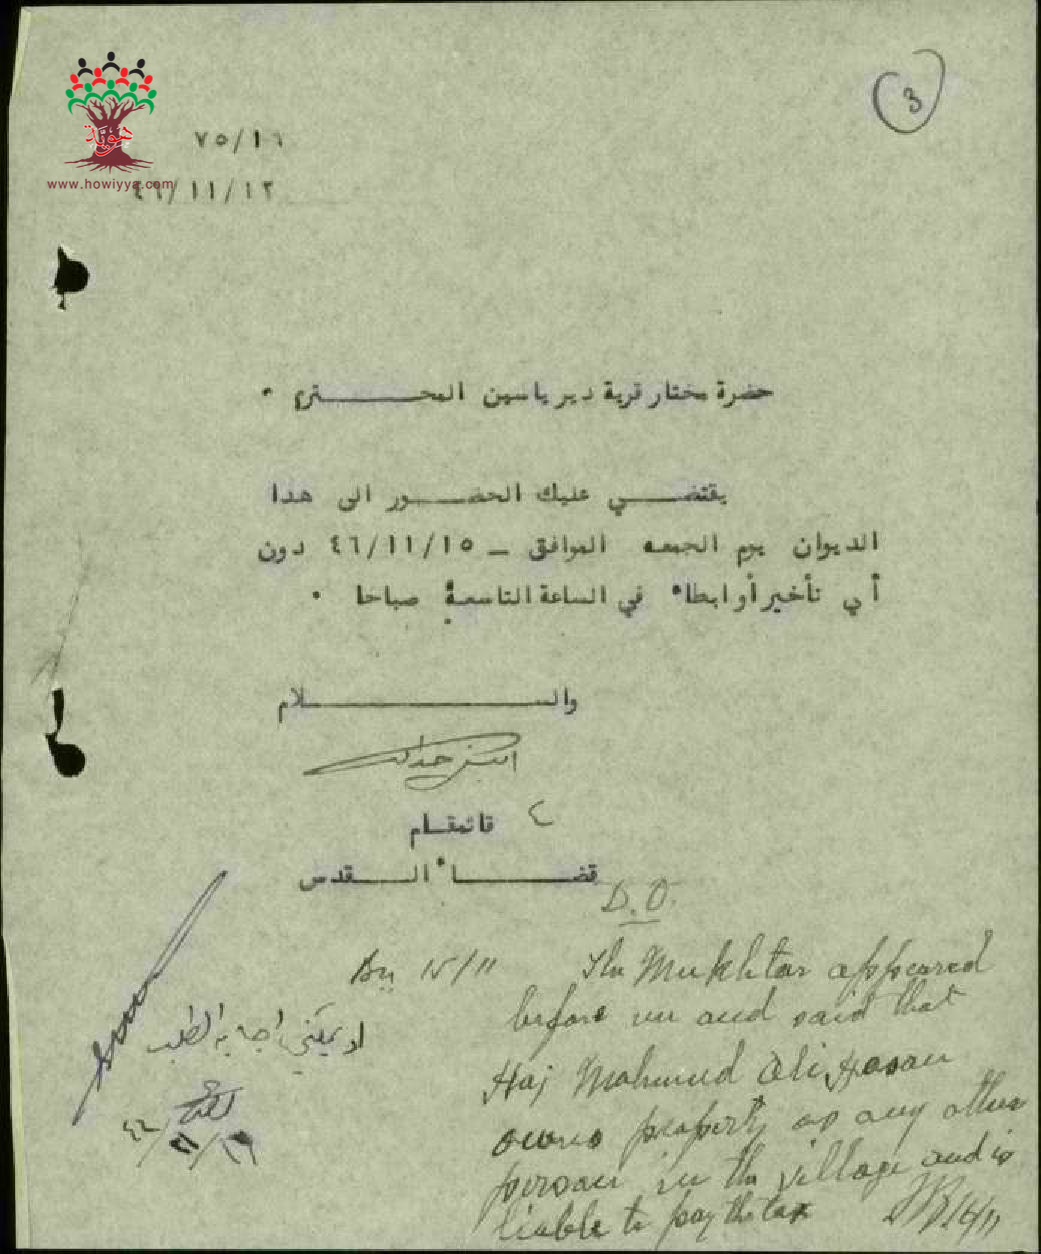 3
هوية
www.howiyya.com
٧٥/١٦
٤٦/١١/١٢
حضرة مختار قرية دير ياسين المحـــــترم ٠
يقتضـــي عليك الحضـــور الى هذا
الديوان يوم الجمعه الموافق ــ ٤٦/١١/١٥ دون
أي تأخير أو ابطاء في الساعة التاسعة صباحا ٠
والســـــــــلام
قائمقـام
قضـــــاء القدس
D.O.
By ١٥/١١ The Mukhtar appeared
before me and said that
Haj Mahmud Ali Hasan
owns property as any other
person in the village and is
liable to pay the tax
16/11
اجابة الطلب